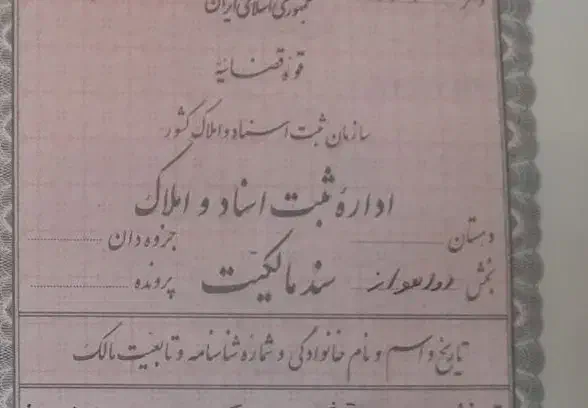 جمهوری اسلامی ایران
قوه قضائیه
سازمان ثبت اسناد و املاک کشور
ادارهٔ ثبت اسناد و املاک
دهستان جزوه‌دان
بخش سند مالکیت پرونده
تاریخ و اسم و نام خانوادگی و شمارهٔ شناسنامه و تابعیت مالک